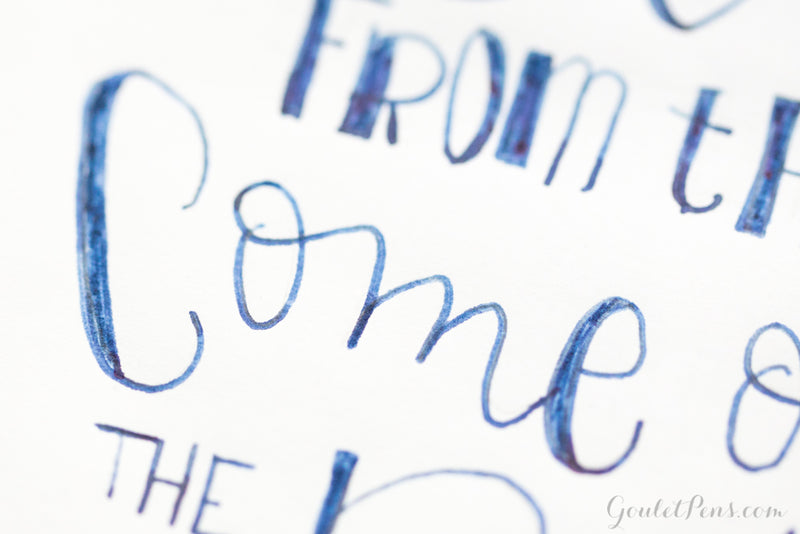 FROM
Come
THE
GouletPens.com